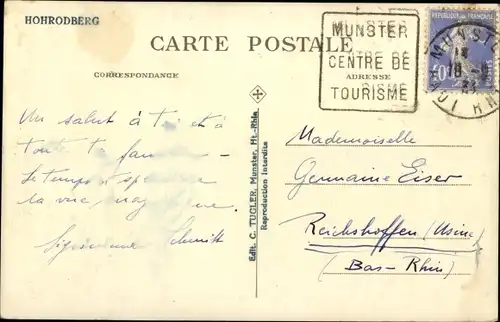 HOHRODBERG
CARTE POSTALE
CORRESPONDANCE
ADRESSE
MUNSTER
CENTRE DE
TOURISME
REPUBLIQUE FRANÇAISE
40
MUNSTER
18
RHIN
Un salut à toi et à
toute ta
le temps
la vue
Schmitt
Edit. C. TUGLER, Munster, Ht-Rhin
Reproduction Interdite
Mademoiselle
Germaine Eiser
Reichshoffen (Usine)
(Bas-Rhin)